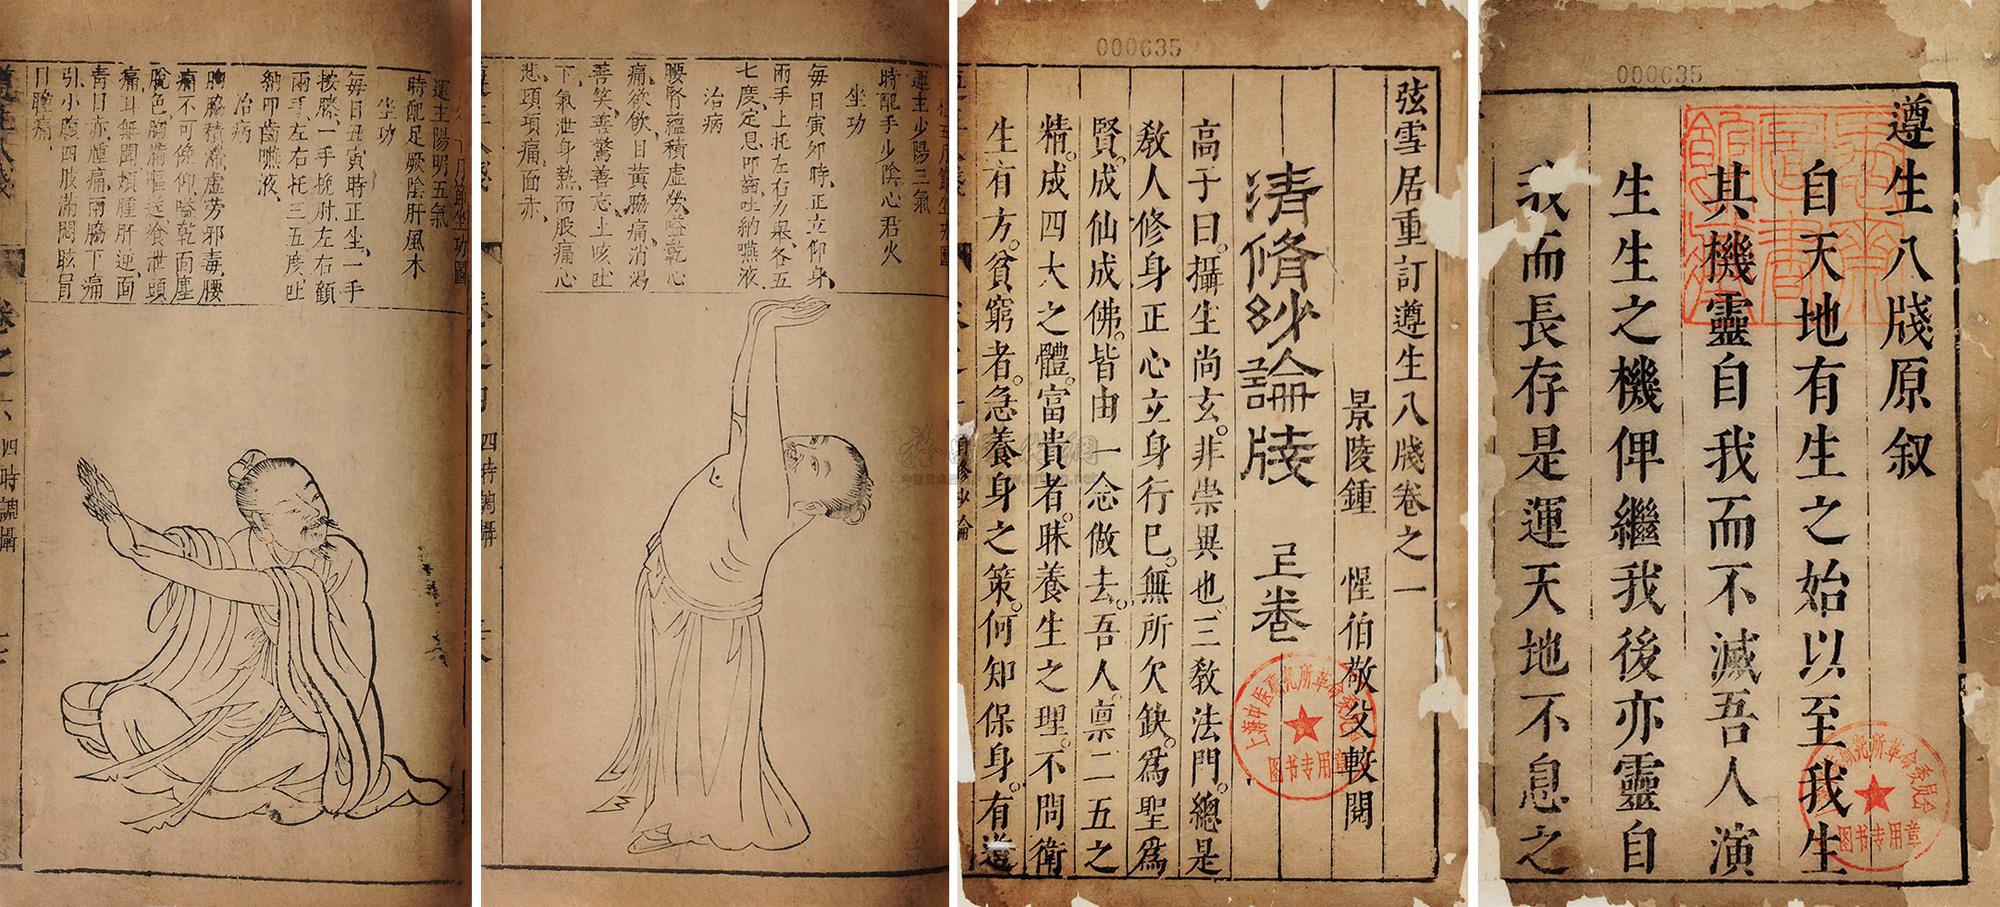 000635
遵生八牋原叙
自天地有生之始以至我生
其機靈自我而不滅吾人演
生生之機俾繼我後亦靈自
我而長存是運天地不息之
图书专用章
000635
弦雪居重訂遵生八牋卷之一
景陵鍾 惺伯敬父較閱
清脩妙論牋 上卷
高子曰。攝生尚玄。非崇異也、三敎法門。總是
敎人修身正心立身行巳。無所欠缺。爲聖爲
賢。成仙成佛。皆由一念做去。吾人。禀二五之
精。成四大之體。富貴者。昧養生之理。不問衛
生有方。貧窮者。急養身之策。何知保身。有道
上海中医药研究所革命委员会
图书专用章
運主少陽三氣
時配手少陰心君火
坐功
每日寅夘時、正立仰身、
兩手上托、左右力舉、各五
七度、定息、叩齒、吐納嚥液、
治病
腰腎蘊積虛勞、嗌乾心
痛、欲飲、目黃脇痛、消渴
善笑、善驚善忘、上咳吐
下、氣泄身熱、而股痛心
悲、頭項痛、面赤、
四時調攝
運主陽明五氣
時配足厥陰肝風木
坐功
每日丑寅時、正坐、一手
按膝、一手挽肘、左右顧
兩手左右托三五度、吐
納叩齒嚥液、
治病
胸脇積滯、虛勞邪毒、腰
痛不可俛仰、嗌乾面塵
脫色、胸滿嘔逆、飧泄頭
痛、耳無聞、頰腫肝逆、面
青目赤、腫痛、兩脇下痛
引小腹、四肢滿悶眩冒
目瞳痛、
卷之六
四時調攝